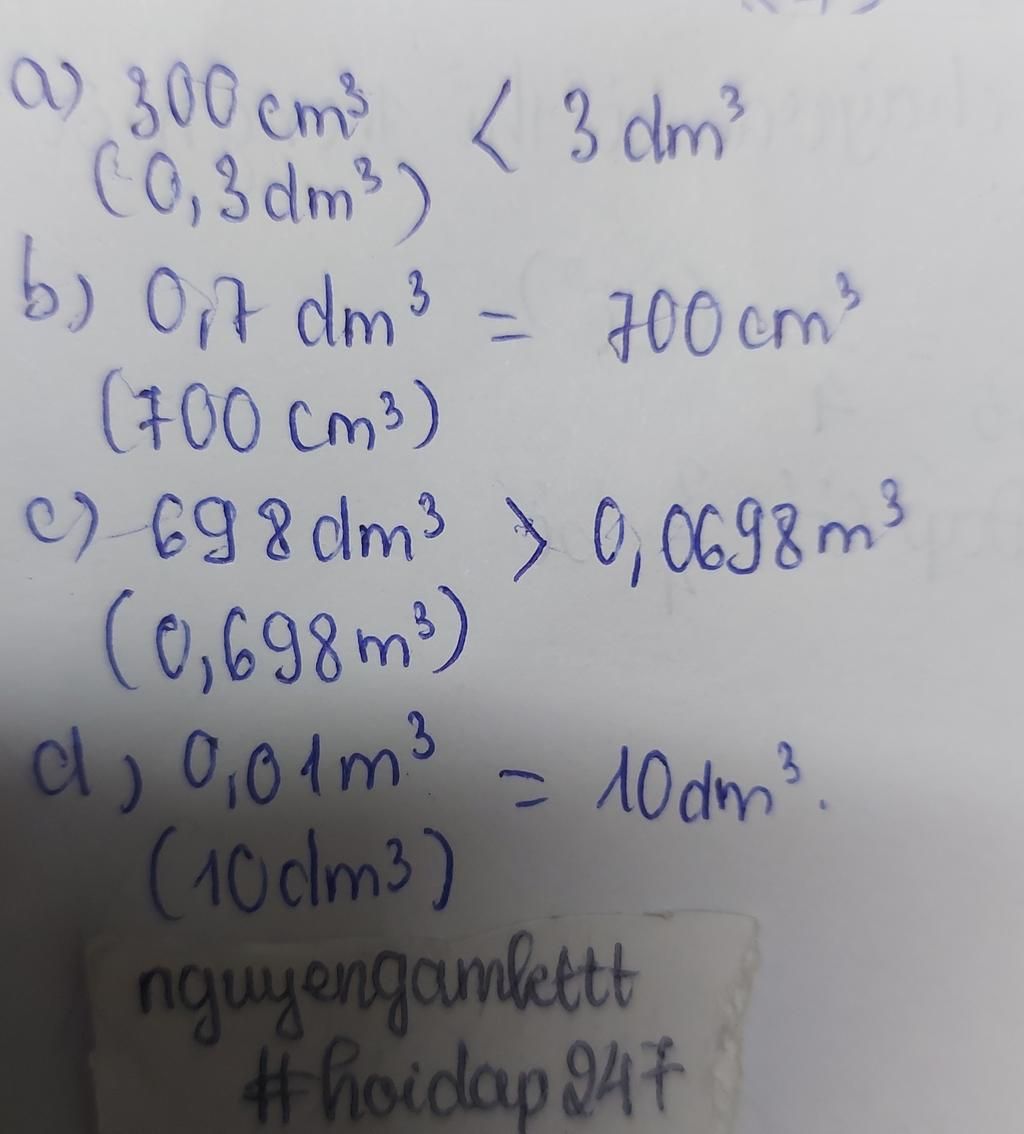 a) 300 cm³ < 3 dm³
(0,3 dm³)
b) 0,7 dm³ = 700 cm³
(700 cm³)
c) 698 dm³ > 0,0698 m³
(0,698 m³)
d) 0,01 m³ = 10 dm³.
(10 dm³)
nguyengamlettt
#hoidap247